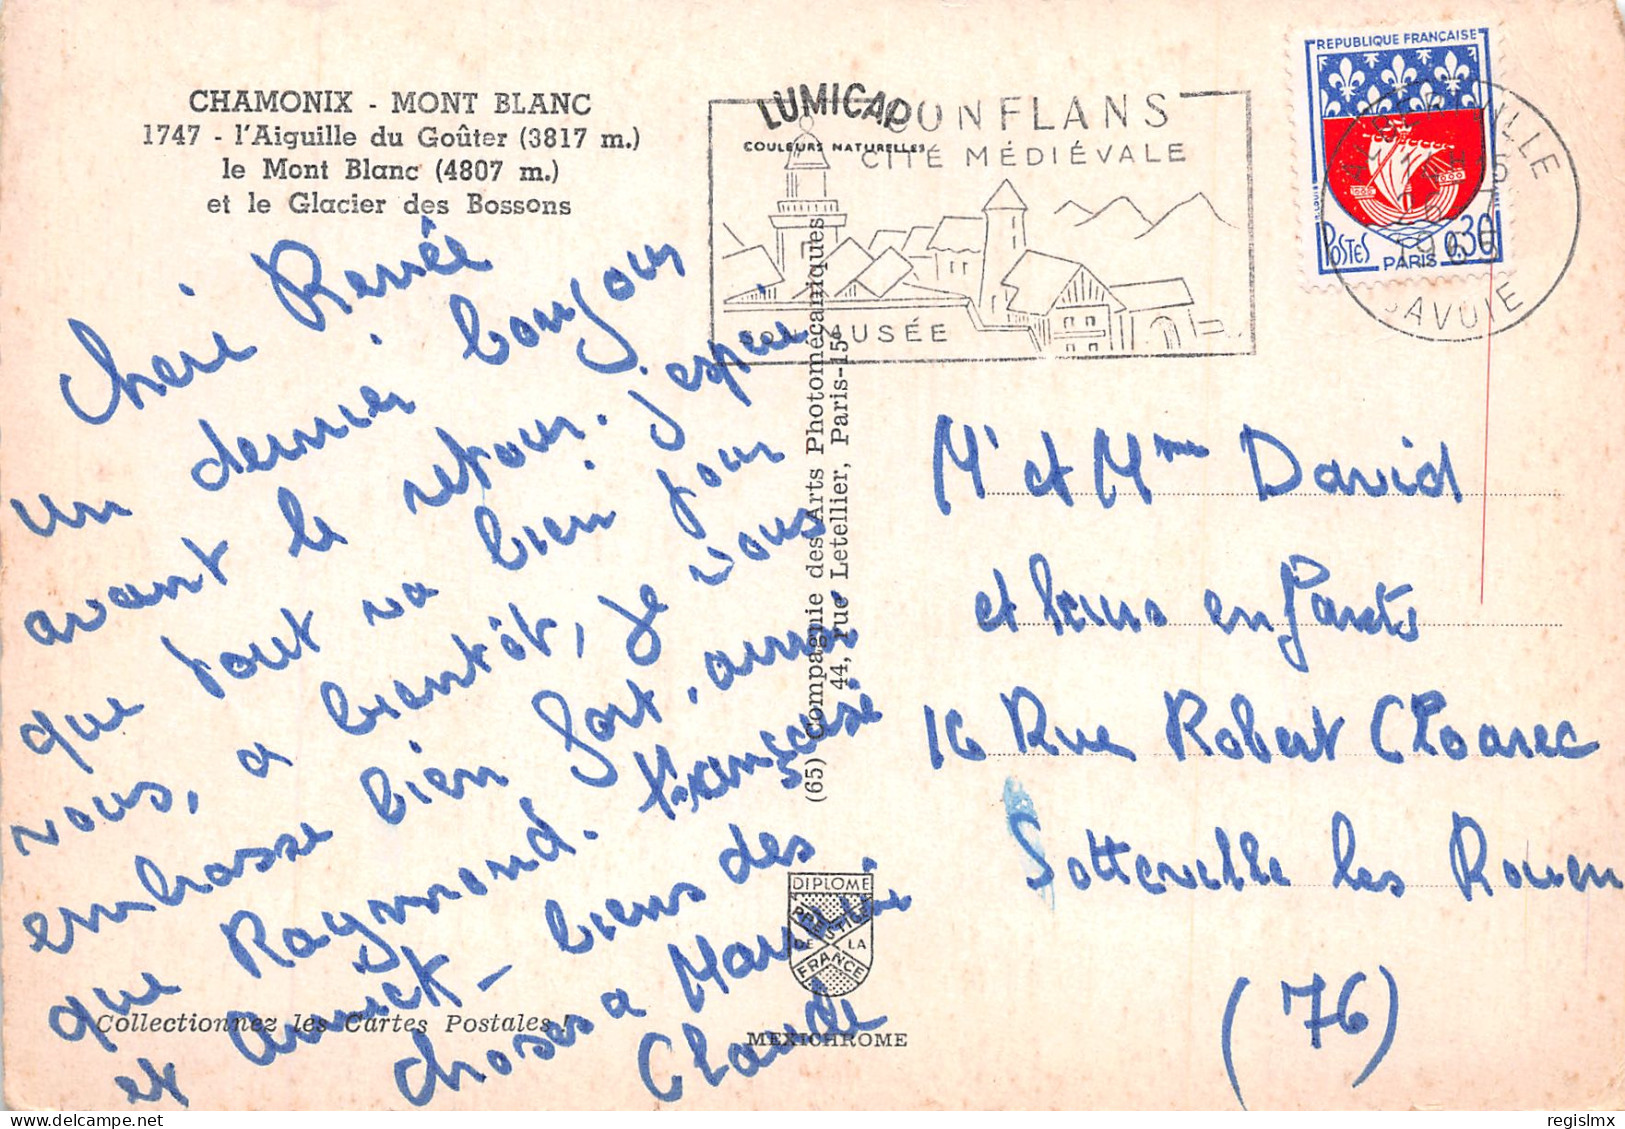 CHAMONIX - MONT BLANC
1747 - l'Aiguille du Goûter (3817 m.)
le Mont Blanc (4807 m.)
et le Glacier des Bossons
LUMICAP
COULEURS NATURELLES
CONFLANS
CITÉ MÉDIÉVALE
SON MUSÉE
REPUBLIQUE FRANÇAISE
POSTES
PARIS 0,30
ALBERTVILLE
SAVOIE
Chère Renée
un dernier bonjour
avant le retour. j'espère
que tout va bien pour
vous, a bientôt, je vous
embrasse bien fort, ainsi
que Raymond. Françoise
et Annick - biens des
choses a
Claude
(65) Compagnie des Arts Photomécaniques
44, rue Letellier, Paris-15
DIPLOME
PRESTIGE
DE LA
FRANCE
MEXICHROME
Collectionnez les Cartes Postales !
Mr et Mme David
et leurs enfants
16 Rue Robert Cloarec
Sotteville les Rouen
(76)
regislmx